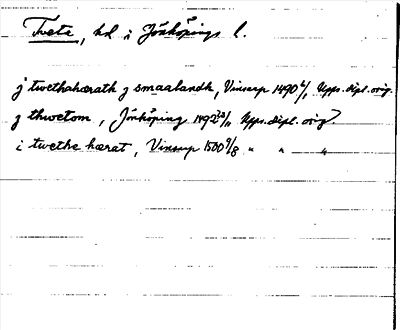 Tveta, hd i Jönköpings l.
j twethahærath j smaalandh, Vinsarp 1490 6/, Upps. dipl. orig.
j thwetom, Jönköping 1492 23/11 Upps. dipl. orig.
i twethe hærat, Vinsarp 1500 9/8 " " "